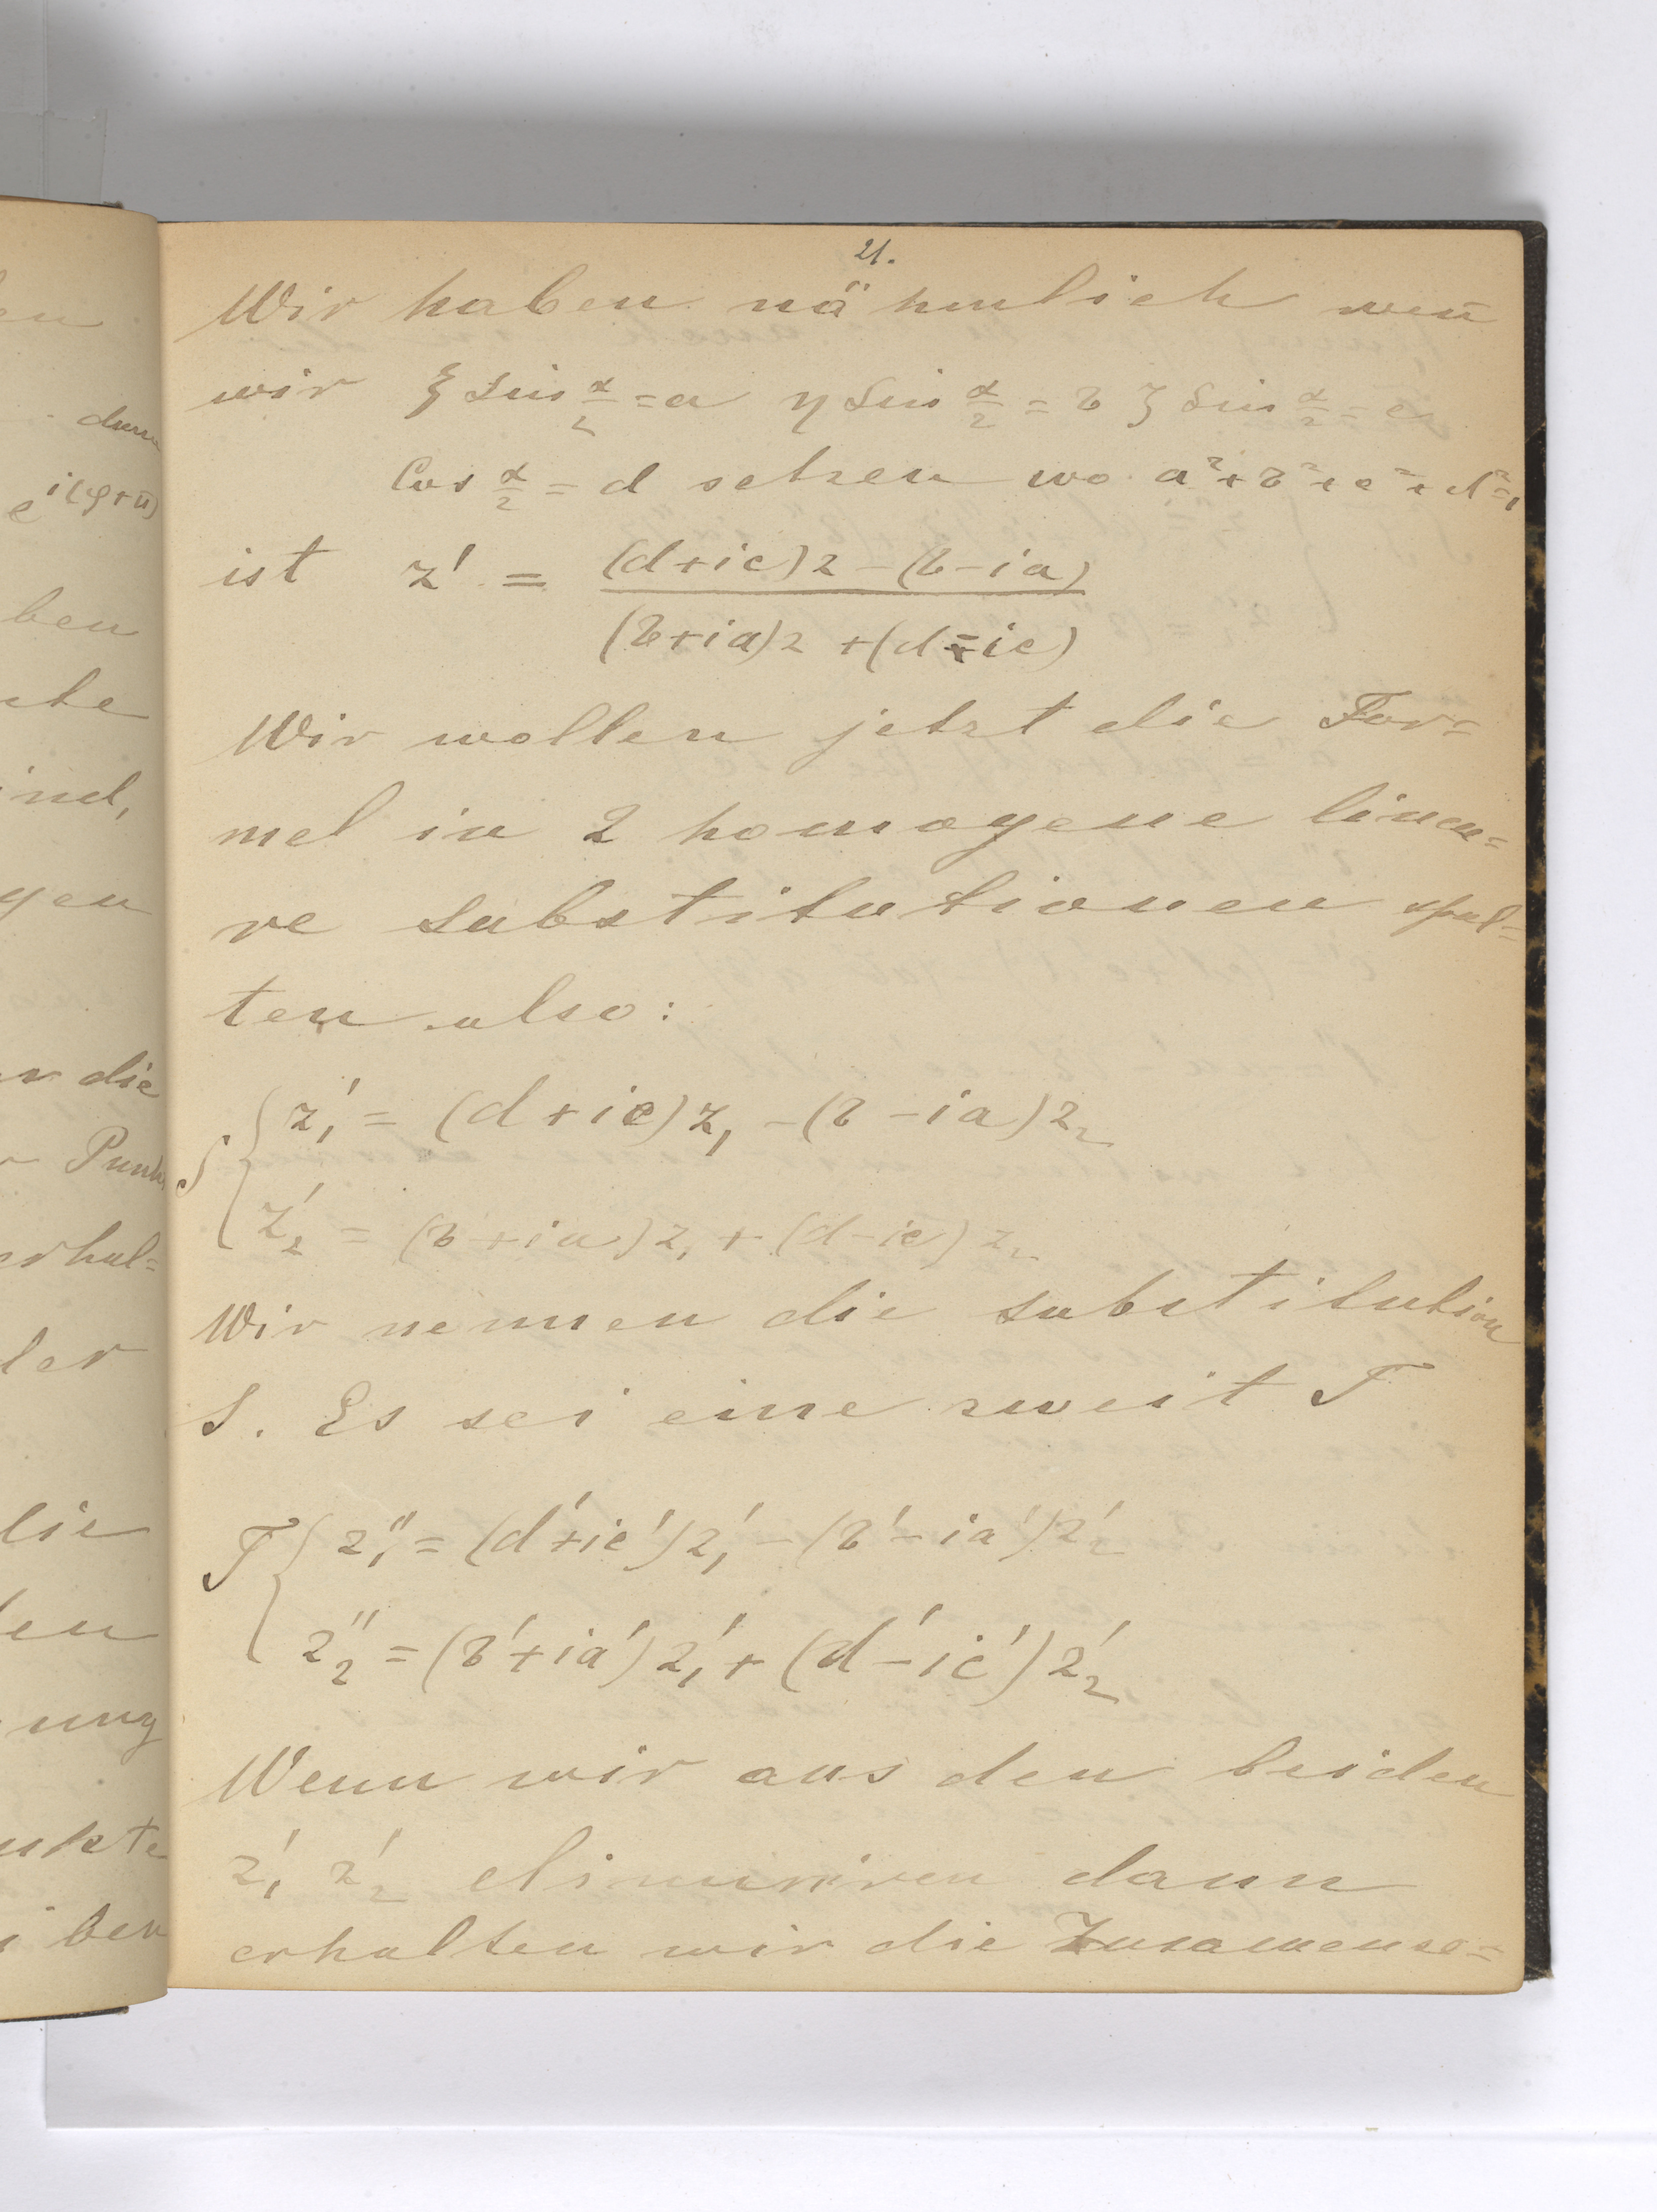 21.
Wir haben nähmlich weñ
wir ξ Sin α/2 = a η Sin α/2 = b ζ Sin α/2 = c
Cos α/2 = d setzen wo a² + b² + c² + d² = 1
ist z' = ((d+ic)z - (b-ia)) / ((b+ia)z + (d-ic))
Wir wollen jetzt die For=
mel in 2 homogene linea=
re Substitutionen spal=
ten also:
S { z₁' = (d+ic)z₁ - (b-ia)z₂
z₂' = (b+ia)z₁ + (d-ic)z₂
Wir nennen die Substitution
S. Es sei eine zweit T
T { z₁'' = (d'+ic')z₁' - (b'-ia')z₂'
z₂'' = (b'+ia')z₁' + (d'-ic')z₂'
Wenn wir aus den beiden
z₁' z₂' eliminiren dann
erhalten wir die Zusamense=
dann
e^i(φ+π)
ben
ind,
gen
die
Punk
erhal=
der
die
ung